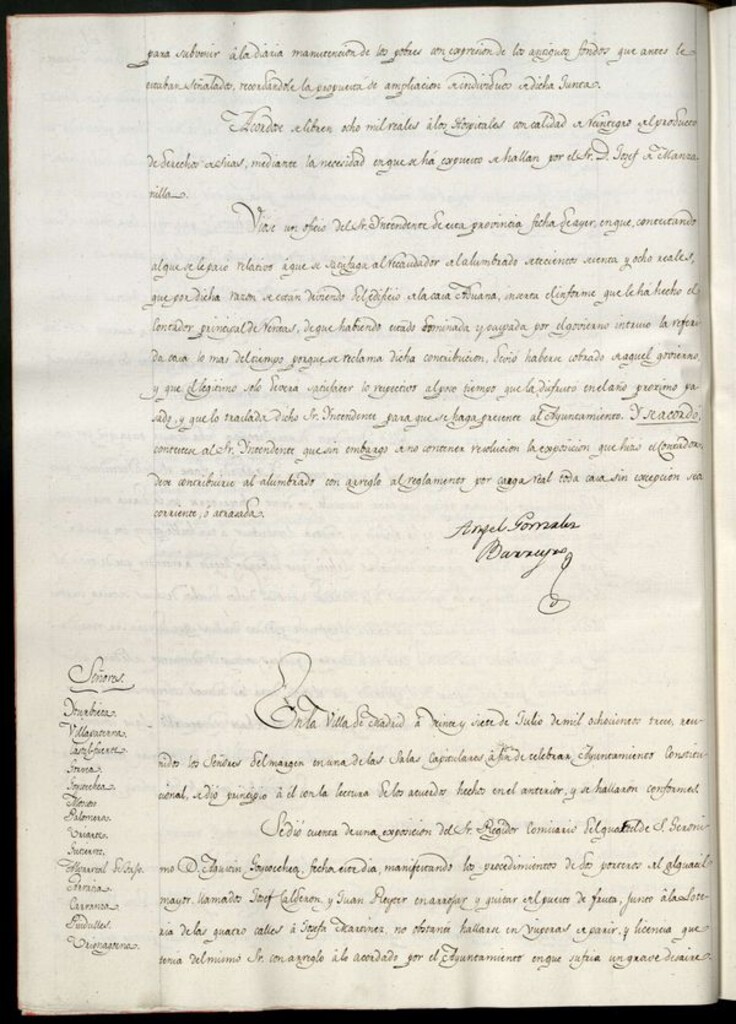 para subvenir á la diaria manutencion de los pobres con expresion de los antiguos fondos que antes le
estaban señalados, recordandole la propuesta de ampliacion de individuos de dicha Junta.
Acordose se libren ocho mil reales á los Hospitales con calidad de reintegro del producto
de derechos de sisas, mediante la necesidad en que se há expuesto se hallan por el Sr. D. Josef de Manza
nilla.
Viose un oficio del Sr. Yntendente de esta provincia fecha de ayer, en que, contestando
al que se le pasó relativo á que se satisfaga al recaudador del alumbrado setecientos setenta y ocho reales,
que por dicha razon se estan deviendo del edificio de la casa Aduana, inserta el informe que le há hecho el
Contador principal de rentas, de que habiendo estado dominada y ocupada por el govierno intruso la referi
da casa lo mas del tiempo porque se reclama dicha contribucion, devió haberse cobrado de aquel govierno,
y que el legitimo solo deverá satisfacer lo respectivo al poco tiempo que la disfrutó en el año proximo pa
sado, y que lo traslada dicho Sr. Yntendente para que se haga presente al Ayuntamiento. Y se acordó,
conteste al Sr. Yntendente que sin embargo de no contener resolucion la exposicion que hizo el Contador,
deve contribuirse al alumbrado con arreglo al reglamento por carga real toda casa sin excepcion sea
corriente, ó atrasada.
Angel Gonzalez
Barreyro
Señores.
Yturbieta.
Villapaterna.
Castelfuerte.
Goycochea.
Alonso
Palomera.
Uriarte.
Gutierrez.
Carranza.
En la Villa de Madrid á veinte y siete de Julio de mil ochocientos trece, reu-
nidos los Señores del margen en una de las Salas Capitulares á fin de celebrar Ayuntamiento Constitu-
cional, se dió principio á él con la lectura de los acuerdos hechos en el anterior, y se hallaron conformes.
Se dió cuenta de una exposicion del Sr. Regidor Comisario del quartel de S. Geroni-
mo D. Agustin Goycochea, fecha este dia, manifestando los procedimientos de dos porteros del alguacil
mayor, llamados Josef Calderon, y Juan Reyter en arrojar y quitar el puesto de fruta, junto á la Lote-
ria de las quatro calles á Josefa Martinez, no obstante hallarse en visperas de parir, y licencia que
tenia del mismo Sr. con arreglo á lo acordado por el Ayuntamiento en que sufria un grave desaire